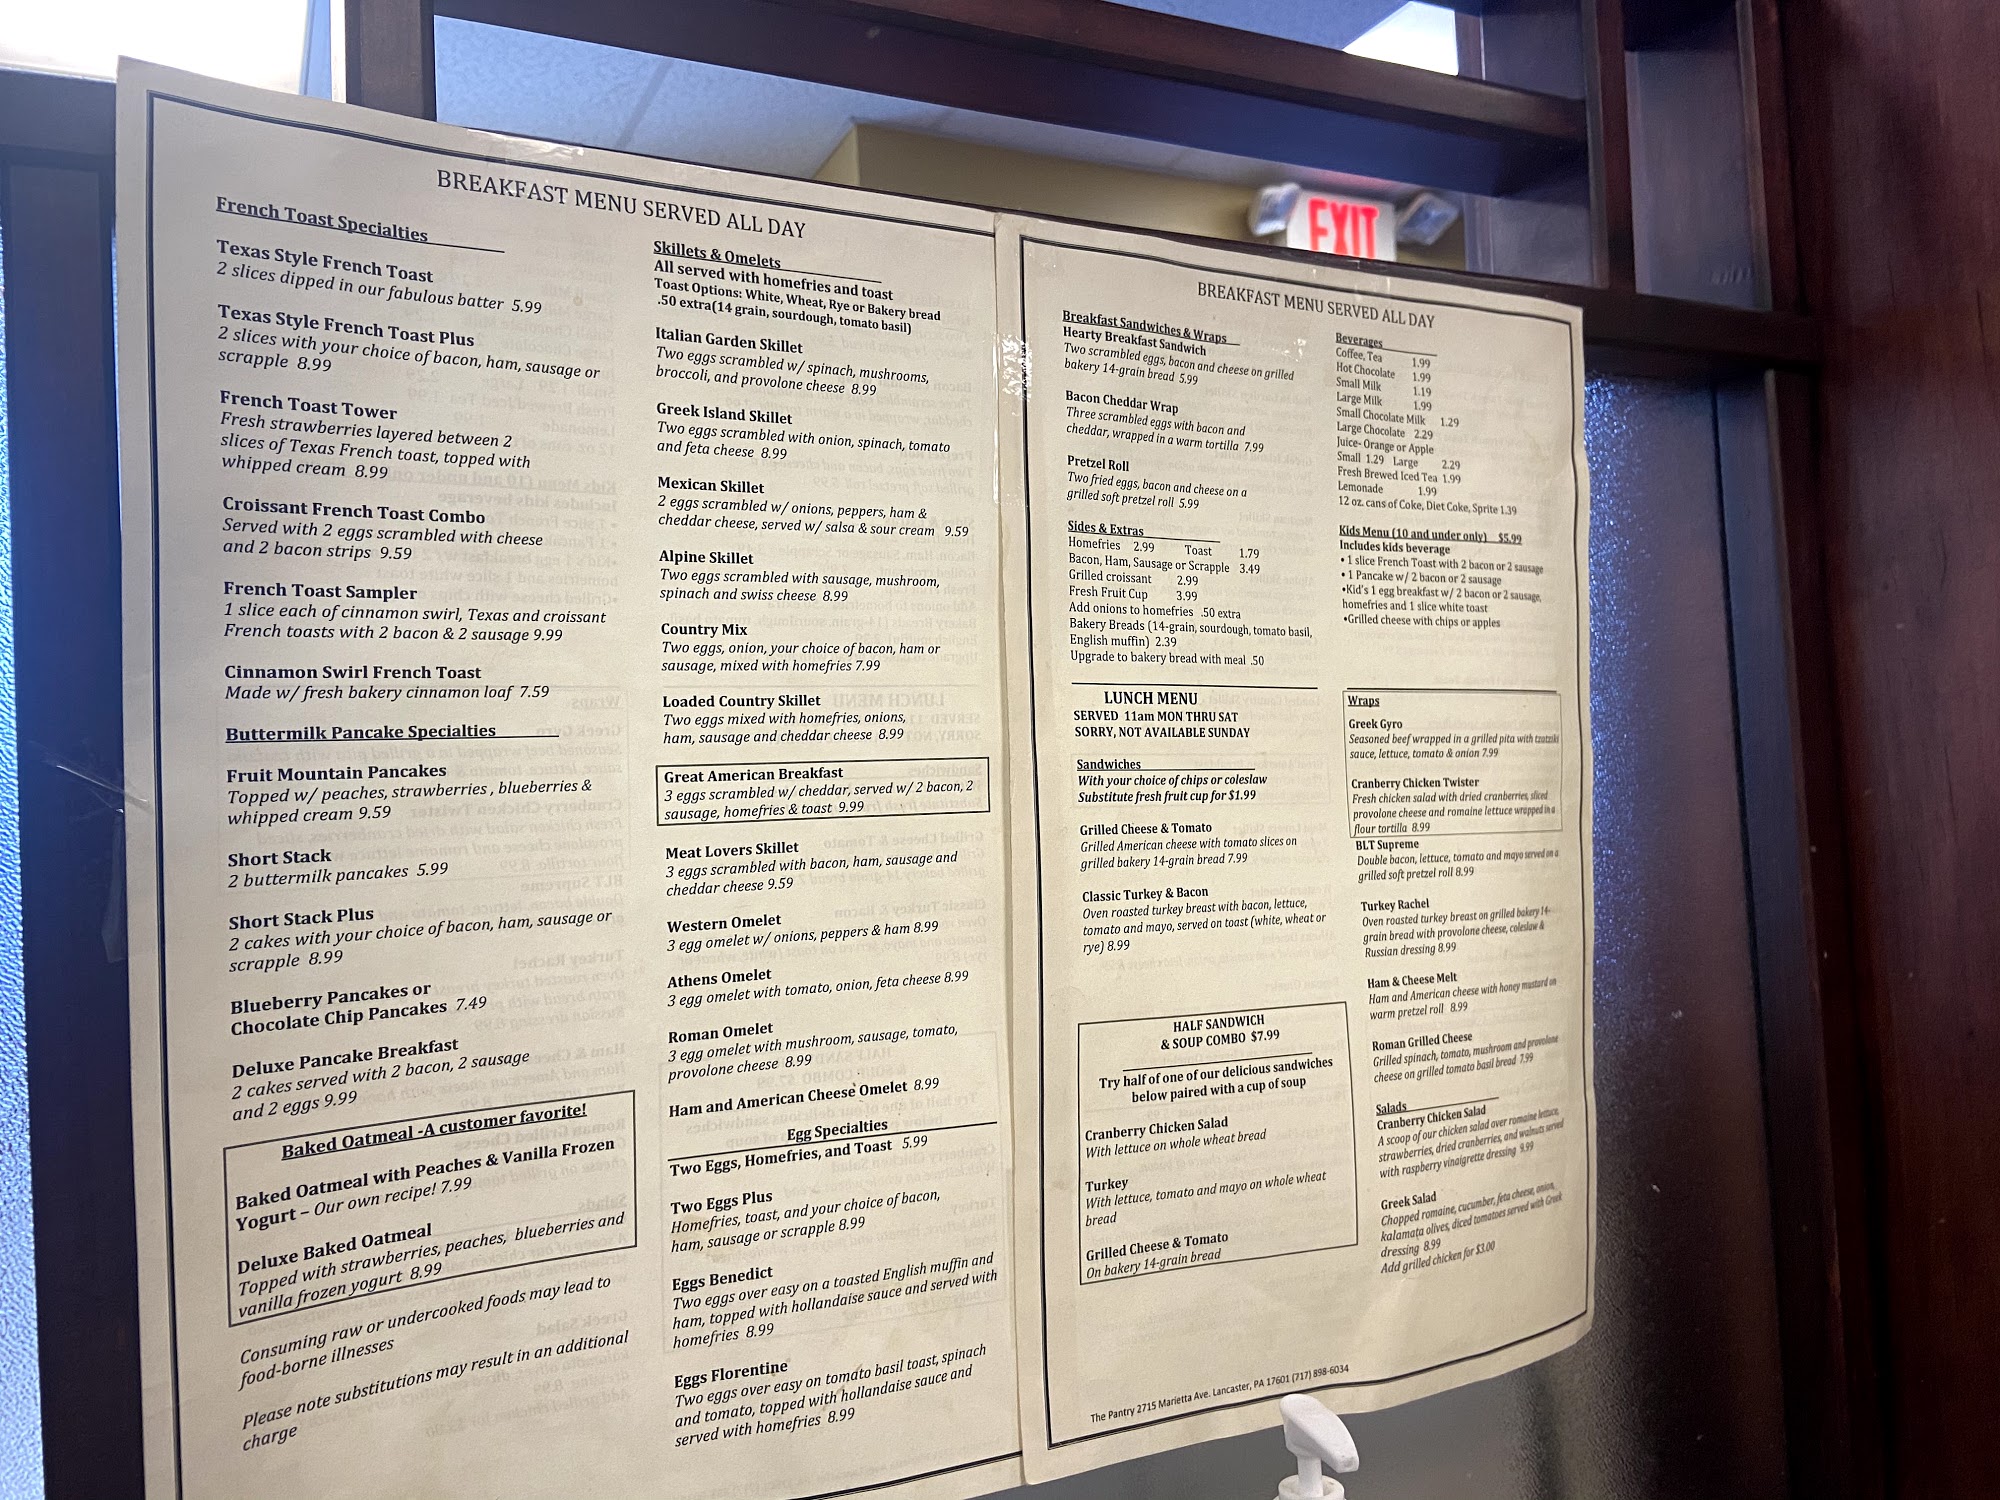 BREAKFAST MENU SERVED ALL DAY
French Toast Specialties
Texas Style French Toast
2 slices dipped in our fabulous batter 5.99
Texas Style French Toast Plus
2 slices with your choice of bacon, ham, sausage or
scrapple 8.99
French Toast Tower
Fresh strawberries layered between 2
slices of Texas French toast, topped with
whipped cream 8.99
Croissant French Toast Combo
Served with 2 eggs scrambled with cheese
and 2 bacon strips 9.59
French Toast Sampler
1 slice each of cinnamon swirl, Texas and croissant
French toasts with 2 bacon & 2 sausage 9.99
Cinnamon Swirl French Toast
Made w/ fresh bakery cinnamon loaf 7.59
Buttermilk Pancake Specialties
Fruit Mountain Pancakes
Topped w/ peaches, strawberries , blueberries &
whipped cream 9.59
Short Stack
2 buttermilk pancakes 5.99
Short Stack Plus
2 cakes with your choice of bacon, ham, sausage or
scrapple 8.99
Blueberry Pancakes or
Chocolate Chip Pancakes 7.49
Deluxe Pancake Breakfast
2 cakes served with 2 bacon, 2 sausage
and 2 eggs 9.99
Baked Oatmeal -A customer favorite!
Baked Oatmeal with Peaches & Vanilla Frozen
Yogurt – Our own recipe! 7.99
Deluxe Baked Oatmeal
Topped with strawberries, peaches, blueberries and
vanilla frozen yogurt 8.99
Consuming raw or undercooked foods may lead to
food-borne illnesses
Please note substitutions may result in an additional
charge
Skillets & Omelets
All served with homefries and toast
Toast Options: White, Wheat, Rye or Bakery bread
.50 extra(14 grain, sourdough, tomato basil)
Italian Garden Skillet
Two eggs scrambled w/ spinach, mushrooms,
broccoli, and provolone cheese 8.99
Greek Island Skillet
Two eggs scrambled with onion, spinach, tomato
and feta cheese 8.99
Mexican Skillet
2 eggs scrambled w/ onions, peppers, ham &
cheddar cheese, served w/ salsa & sour cream 9.59
Alpine Skillet
Two eggs scrambled with sausage, mushroom,
spinach and swiss cheese 8.99
Country Mix
Two eggs, onion, your choice of bacon, ham or
sausage, mixed with homefries 7.99
Loaded Country Skillet
Two eggs mixed with homefries, onions,
ham, sausage and cheddar cheese 8.99
Great American Breakfast
3 eggs scrambled w/ cheddar, served w/ 2 bacon, 2
sausage, homefries & toast 9.99
Meat Lovers Skillet
3 eggs scrambled with bacon, ham, sausage and
cheddar cheese 9.59
Western Omelet
3 egg omelet w/ onions, peppers & ham 8.99
Athens Omelet
3 egg omelet with tomato, onion, feta cheese 8.99
Roman Omelet
3 egg omelet with mushroom, sausage, tomato,
provolone cheese 8.99
Ham and American Cheese Omelet 8.99
Egg Specialties
Two Eggs, Homefries, and Toast 5.99
Two Eggs Plus
Homefries, toast, and your choice of bacon,
ham, sausage or scrapple 8.99
Eggs Benedict
Two eggs over easy on a toasted English muffin and
ham, topped with hollandaise sauce and served with
homefries 8.99
Eggs Florentine
Two eggs over easy on tomato basil toast, spinach
and tomato, topped with hollandaise sauce and
served with homefries 8.99
EXIT
BREAKFAST MENU SERVED ALL DAY
Breakfast Sandwiches & Wraps
Hearty Breakfast Sandwich
Two scrambled eggs, bacon and cheese on grilled
bakery 14-grain bread 5.99
Bacon Cheddar Wrap
Three scrambled eggs with bacon and
cheddar, wrapped in a warm tortilla 7.99
Pretzel Roll
Two fried eggs, bacon and cheese on a
grilled soft pretzel roll 5.99
Sides & Extras
Homefries 2.99 Toast 1.79
Bacon, Ham, Sausage or Scrapple 3.49
Grilled croissant 2.99
Fresh Fruit Cup 3.99
Add onions to homefries .50 extra
Bakery Breads (14-grain, sourdough, tomato basil,
English muffin) 2.39
Upgrade to bakery bread with meal .50
Beverages
Coffee, Tea 1.99
Hot Chocolate 1.99
Small Milk 1.19
Large Milk 1.99
Small Chocolate Milk 1.29
Large Chocolate 2.29
Juice- Orange or Apple
Small 1.29 Large 2.29
Fresh Brewed Iced Tea 1.99
Lemonade 1.99
12 oz. cans of Coke, Diet Coke, Sprite 1.39
Kids Menu (10 and under only) $5.99
Includes kids beverage
• 1 slice French Toast with 2 bacon or 2 sausage
• 1 Pancake w/ 2 bacon or 2 sausage
•Kid's 1 egg breakfast w/ 2 bacon or 2 sausage,
homefries and 1 slice white toast
•Grilled cheese with chips or apples
LUNCH MENU
SERVED 11am MON THRU SAT
SORRY, NOT AVAILABLE SUNDAY
Sandwiches
With your choice of chips or coleslaw
Substitute fresh fruit cup for $1.99
Grilled Cheese & Tomato
Grilled American cheese with tomato slices on
grilled bakery 14-grain bread 7.99
Classic Turkey & Bacon
Oven roasted turkey breast with bacon, lettuce,
tomato and mayo, served on toast (white, wheat or
rye) 8.99
HALF SANDWICH
& SOUP COMBO $7.99
Try half of one of our delicious sandwiches
below paired with a cup of soup
Cranberry Chicken Salad
With lettuce on whole wheat bread
Turkey
With lettuce, tomato and mayo on whole wheat
bread
Grilled Cheese & Tomato
On bakery 14-grain bread
Wraps
Greek Gyro
Seasoned beef wrapped in a grilled pita with tzatziki
sauce, lettuce, tomato & onion 7.99
Cranberry Chicken Twister
Fresh chicken salad with dried cranberries, sliced
provolone cheese and romaine lettuce wrapped in a
flour tortilla 8.99
BLT Supreme
Double bacon, lettuce, tomato and mayo served on a
grilled soft pretzel roll 8.99
Turkey Rachel
Oven roasted turkey breast on grilled bakery 14-
grain bread with provolone cheese, coleslaw &
Russian dressing 8.99
Ham & Cheese Melt
Ham and American cheese with honey mustard on
warm pretzel roll 8.99
Roman Grilled Cheese
Grilled spinach, tomato, mushroom and provolone
cheese on grilled tomato basil bread 7.99
Salads
Cranberry Chicken Salad
A scoop of our chicken salad over romaine lettuce,
strawberries, dried cranberries, and walnuts served
with raspberry vinaigrette dressing 9.99
Greek Salad
Chopped romaine, cucumber, feta cheese, onion,
kalamata olives, diced tomatoes served with Greek
dressing 8.99
Add grilled chicken for $3.00
The Pantry 2715 Marietta Ave. Lancaster, PA 17601 (717) 898-6034